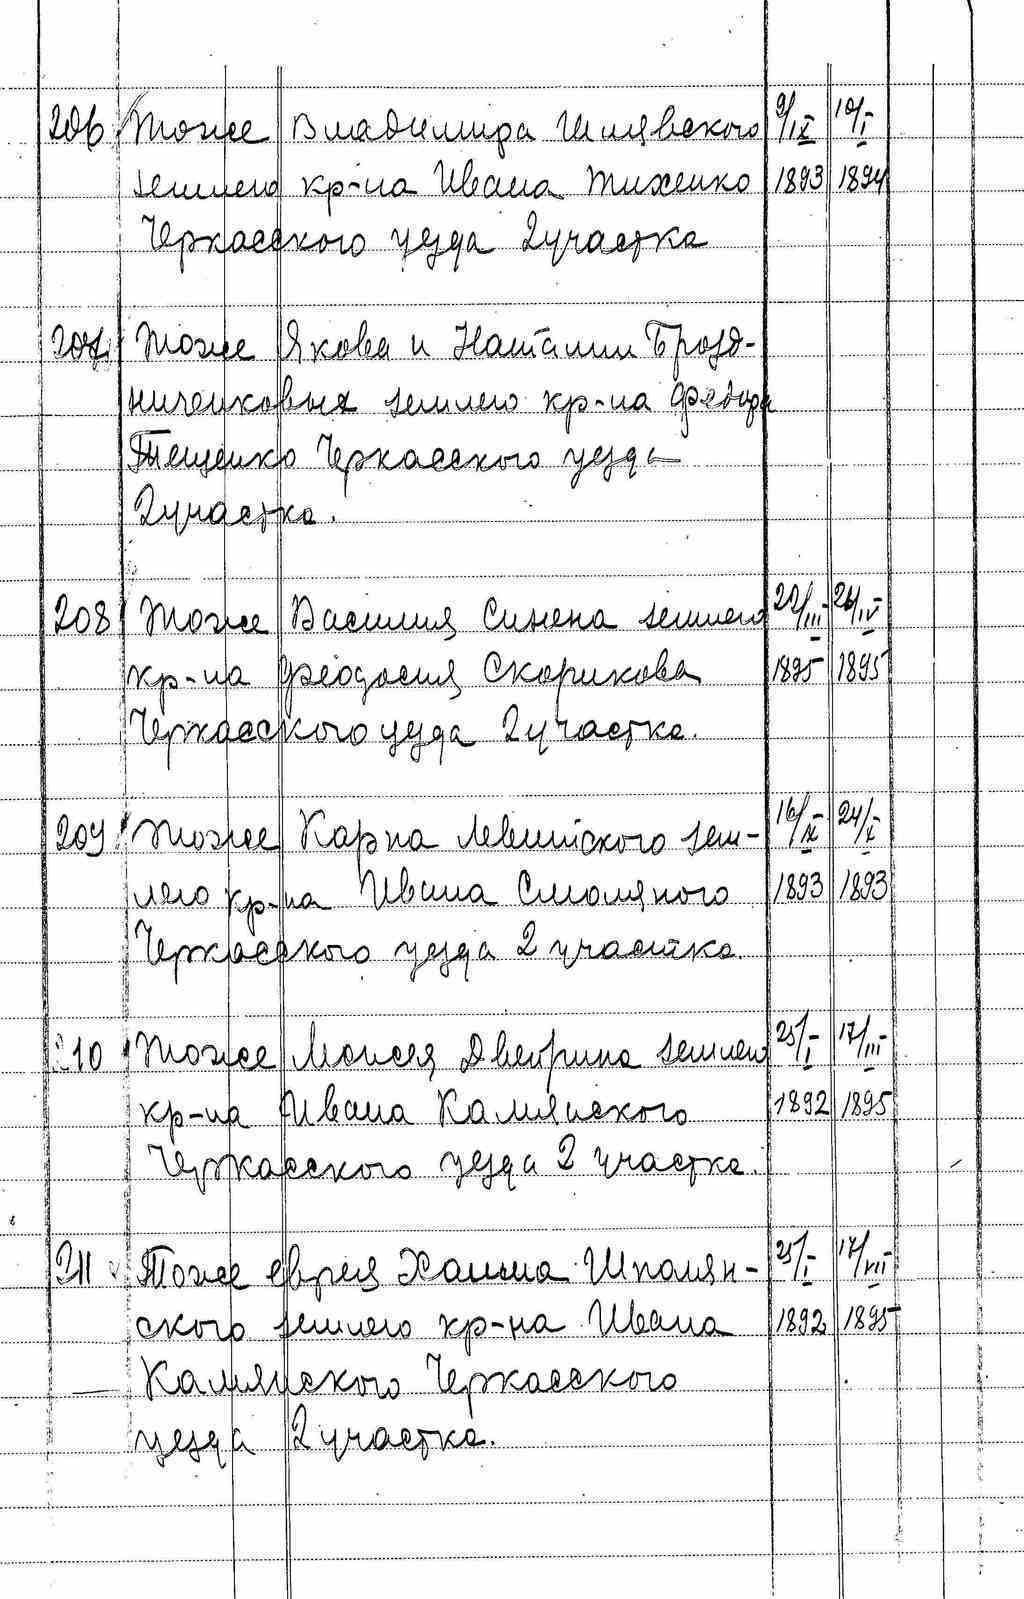 206 Тоже Владимира Шлявского 9/IX 10/I
землею кр-на Ивана Тихенко 1893 1894
Черкасского уезда 2 участка
207 Тоже Якова и Наталии Брозд-
ниченковых землею кр-на Федора
Тещенко Черкасского уезда
2 участка.
208 Тоже Василия Синена землею 22/III 26/IV
кр-на Феодосия Скорикова 1895 1895
Черкасского уезда 2 участка.
209 Тоже Карпа Левитского зем- 16/IX 24/X
лею кр-на Ивана Смоляного 1893 1893
Черкасского уезда 2 участка.
210 Тоже Моисея Двейрина землею 25/I 17/III
кр-на Ивана Камянского 1892 1895
Черкасского уезда 2 участка.
211 Тоже еврея Хаима Шполян- 25/I 17/VII
ского землею кр-на Ивана 1892 1895
Камянского Черкасского
уезда 2 участка.